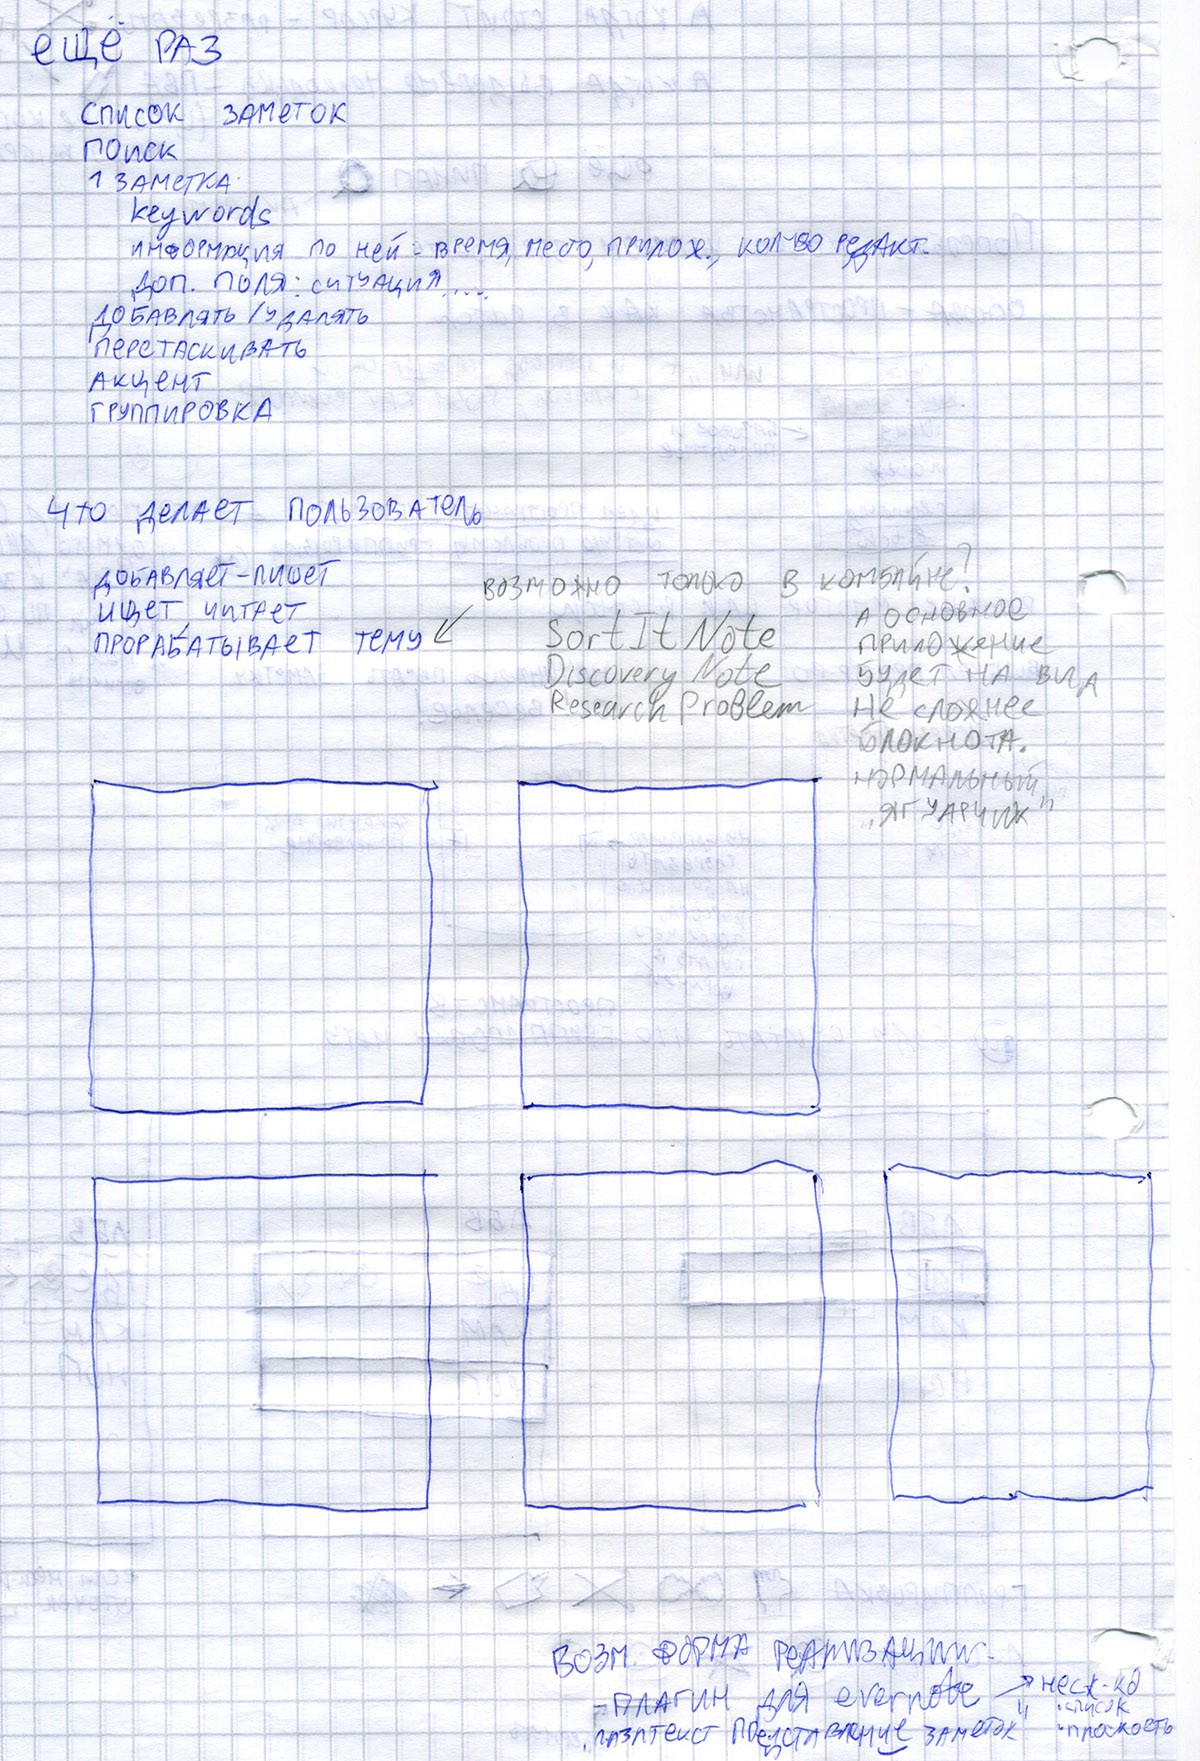 ЕЩЁ РАЗ
СПИСОК ЗАМЕТОК
ПОИСК
1 ЗАМЕТКА
keywords
ИНФОРМАЦИЯ ПО НЕЙ: ВРЕМЯ, МЕСТО, ПРИЛОЖ., КОЛ-ВО РЕДАКТ.
ДОП. ПОЛЯ: СИТУАЦИЯ....
ДОБАВЛЯТЬ / УДАЛЯТЬ
ПЕРЕТАСКИВАТЬ
АКЦЕНТ
ГРУППИРОВКА
ЧТО ДЕЛАЕТ ПОЛЬЗОВАТЕЛЬ
ДОБАВЛЯЕТ-ПИШЕТ
ИЩЕТ, ЧИТАЕТ
ПРОРАБАТЫВАЕТ ТЕМУ
ВОЗМОЖНО ТОЛЬКО В КОМБАЙНЕ?
SortIt Note
Discovery Note
Research Problem
А ОСНОВНОЕ
ПРИЛОЖЕНИЕ
БУДЕТ НА ВИД
НЕ СЛОЖНЕЕ
БЛОКНОТА.
НОРМАЛЬНЫЙ
„ЯГУАРЧИК"
ВОЗМ. ФОРМА РЕАЛИЗАЦИИ
- ПЛАГИН ДЛЯ evernote → НЕСК-КО
ПРЕДСТАВЛЕНИЕ ЗАМЕТОК
СПИСОК
ПЛОСКОСТЬ